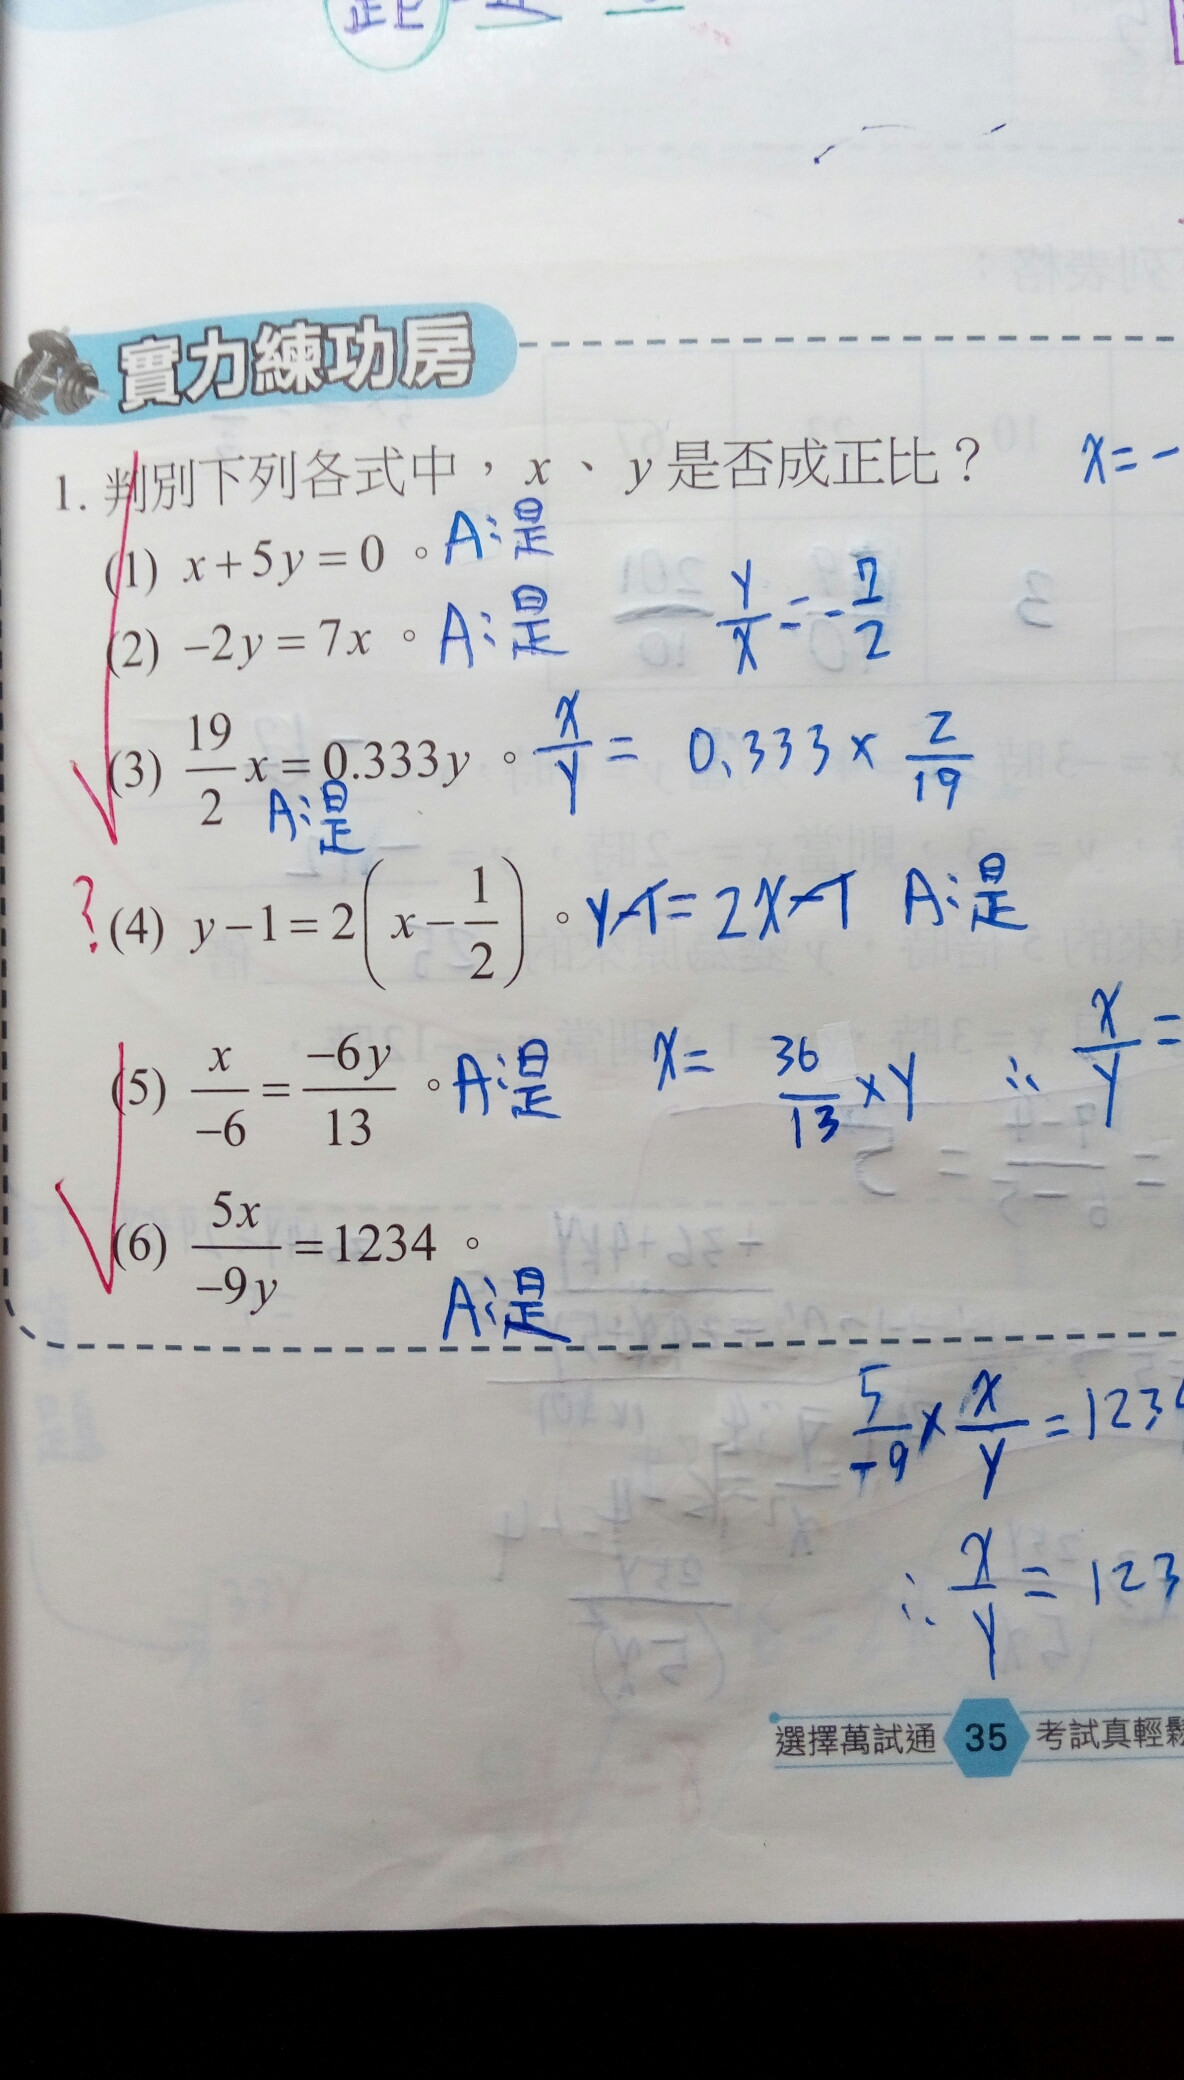 實力練功房
1. 判別下列各式中，x、y是否成正比？ x=-
(1) x+5y=0。A:是
(2) -2y=7x。A:是 y/x=-7/2
(3) 19/2 x=0.333y。x/y= 0.333×2/19
A:是
?(4) y-1=2(x-1/2)。y-1=2x-1 A:是
(5) x/-6=-6y/13。A:是 x= 36/13×y ∴ x/y=
(6) 5x/-9y=1234。
A:是
5/-9×x/y=1234
∴ x/y=123
選擇萬試通 35 考試真輕鬆